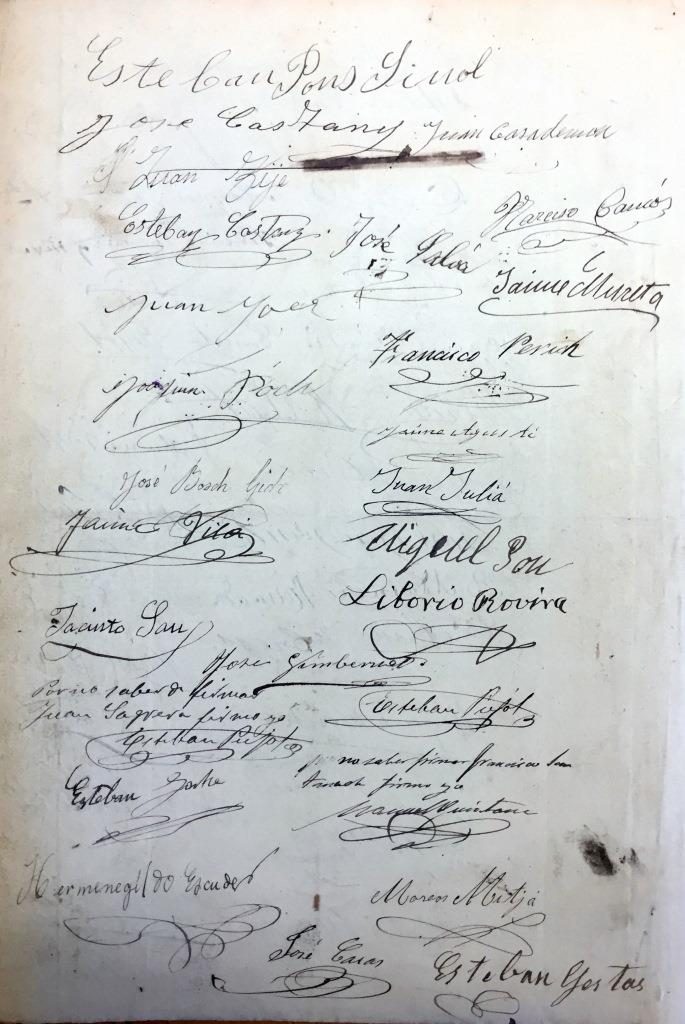 Esteban Pons Sinol
Jose Castany Juan Casademon
Juan
Esteban Castany. José Salvá Narciso Camós
Jaime Mureta
Juan
Francisco Perich
Joaquin Poch
Jaime Agusti
José Bosch
Juan Juliá
Jaime Vila
Miguel Pou
Liborio Rovira
Jacinto Sau
José Gimbernat
Por no saber de firmar
Juan Sagrera firmo yo
Esteban Pujol
Esteban Pujol
por no saber firmar Francisco
firmo yo
Manuel Quintana
Esteban
Hermenegildo Escuder
Marcos Mitjá
José Casas
Esteban Gestas